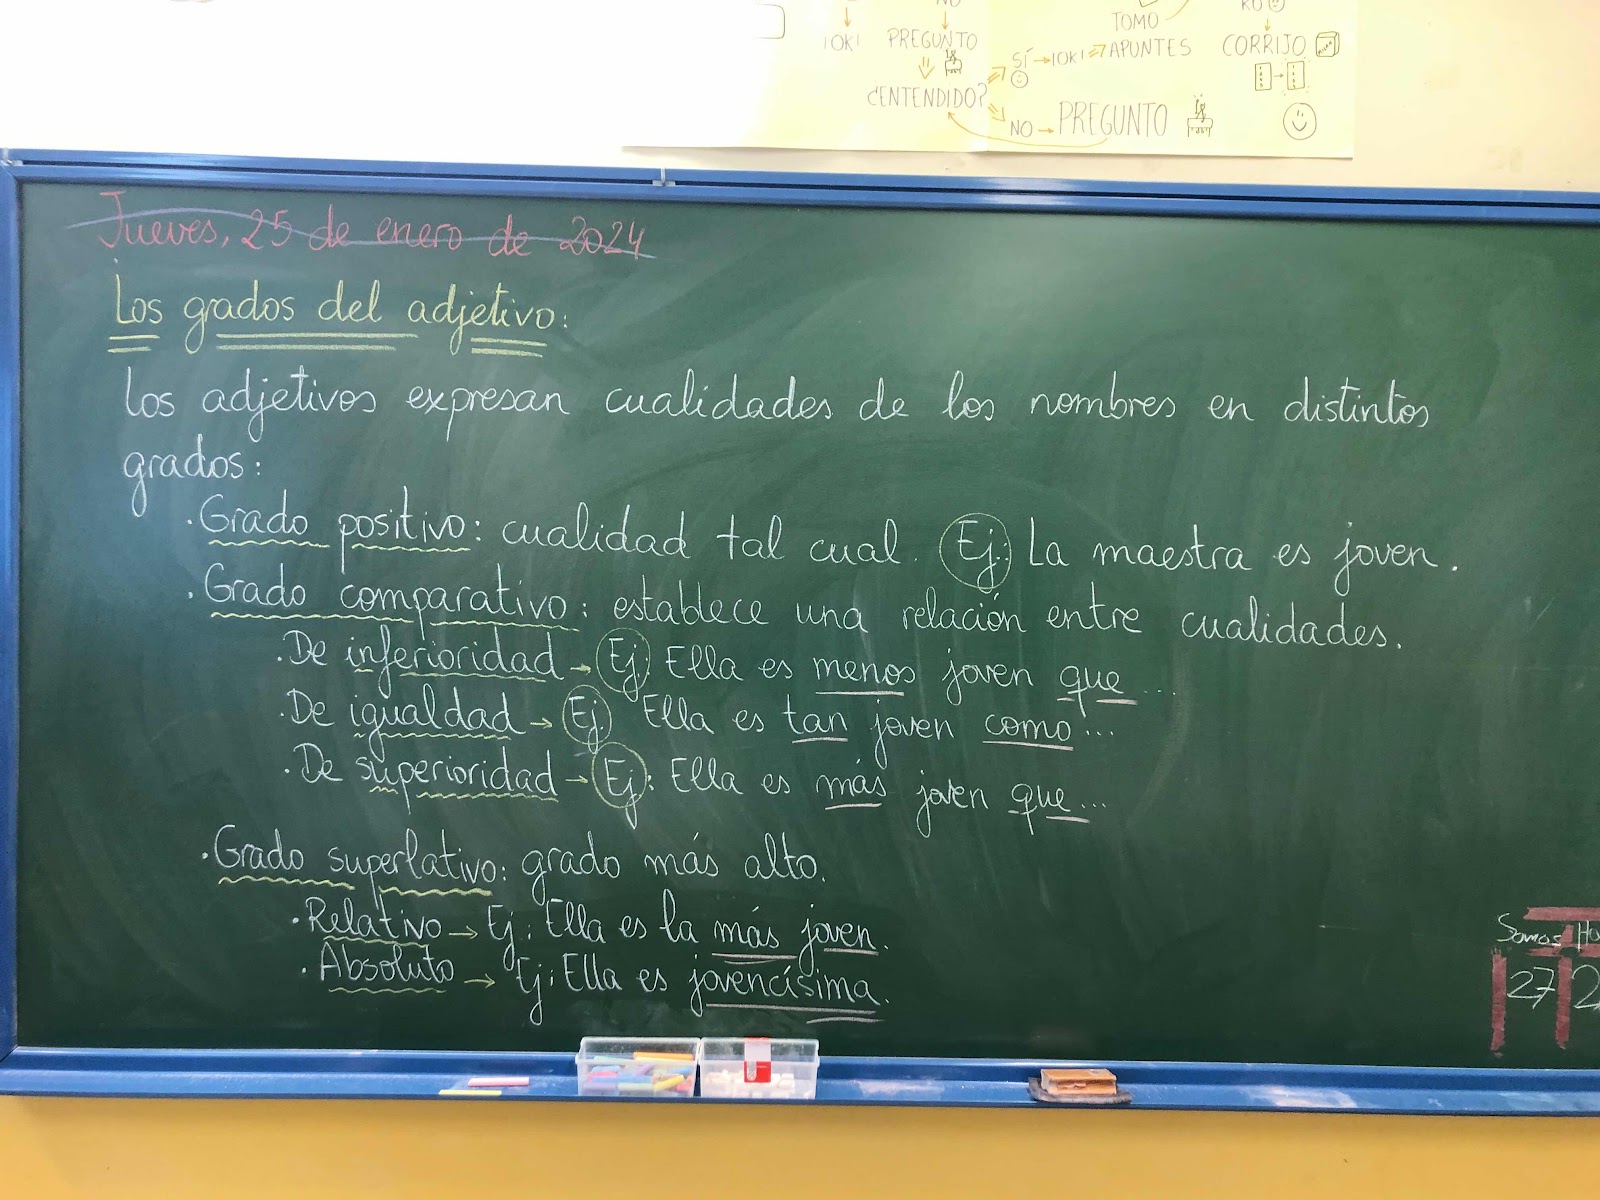 NO
¡OK!
PREGUNTO
¿ENTENDIDO?
SÍ → ¡OK! ⇒ APUNTES
TOMO
NO → PREGUNTO
CORRIJO
Jueves, 25 de enero de 2024
Los grados del adjetivo:
Los adjetivos expresan cualidades de los nombres en distintos
grados:
· Grado positivo: cualidad tal cual. Ej: La maestra es joven.
· Grado comparativo: establece una relación entre cualidades.
· De inferioridad → Ej: Ella es menos joven que...
· De igualdad → Ej: Ella es tan joven como...
· De superioridad → Ej: Ella es más joven que...
· Grado superlativo: grado más alto.
· Relativo → Ej: Ella es la más joven.
· Absoluto → Ej: Ella es jovencísima.
Somos
27